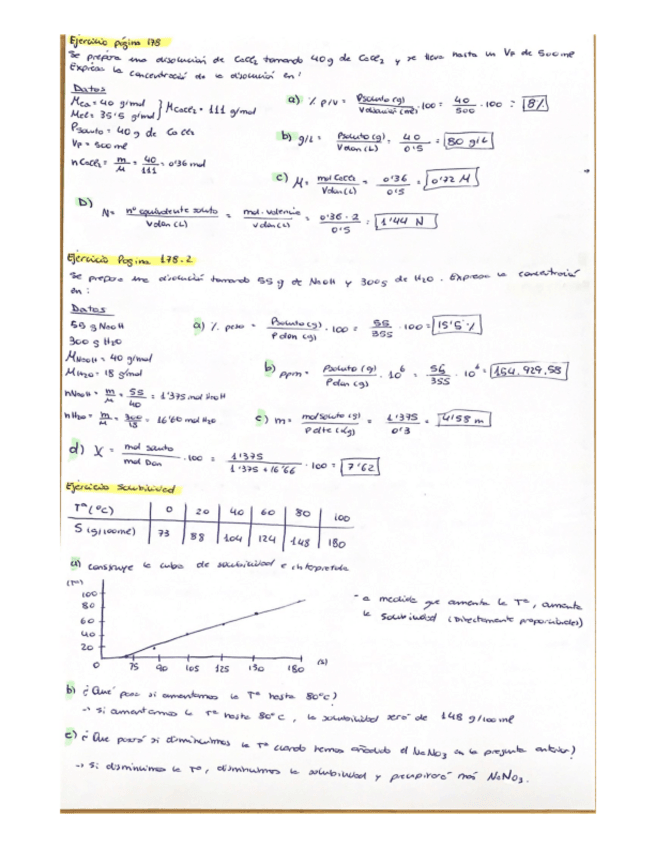 Ejercicio página 178
Se prepara una disolución de CaCl2 tomando 40 g de CaCl2 y se lleva hasta un Vf de 500 ml
Expresa la concentració de la disolución en:
Datos
Mca = 40 g/mol
Mcl = 35'5 g/mol } Mcacl2 = 111 g/mol
Psoluto = 40 g de CaCl2
VF = 500 ml
nCaCl2 = m/M = 40/111 = 0'36 mol
a) % p/v = Psoluto (g) / Vdisolución (ml) · 100 = 40/500 · 100 = 8%
b) g/L = Psoluto (g) / Vdisn (L) = 40/0'5 = 80 g/L
c) M = mol CaCl2 / Vdisn (L) = 0'36/0'5 = 0'72 M
D) N = nº equivalente soluto / Vdisn (L) = mol · valencia / Vdisn (L) = 0'36 · 2 / 0'5 = 1'44 N
Ejercicio Pagina 178.2
Se prepara una disolució tomando 55 g de NaOH y 300g de H2O. Expresa la concentració
en:
Datos
55 g NaOH
300 g H2O
MNaOH = 40 g/mol
MH2O = 18 g/mol
nNaOH = m/M = 55/40 = 1'375 mol NaOH
nH2O = m/M = 300/18 = 16'66 mol H2O
a) % peso = Psoluto (g) / Pdisn (g) · 100 = 55/355 · 100 = 15'5 %
b) ppm = Psoluto (g) / Pdisn (g) · 10^6 = 55/355 · 10^6 = 154.929,58
c) m = mol soluto (g) / P dte (kg) = 1'375/0'3 = 4'58 m
d) X = mol soluto / mol Disn · 100 = 1'375 / 1'375 + 16'66 · 100 = 7'62
Ejercicio Solubilidad
Tª (ºC) 0 20 40 60 80 100
S (g/100ml) 73 88 104 124 148 180
a) construye la curva de solubilidad e interpretala
(Tª)
100
80
60
40
20
0 75 90 105 125 150 180 (S)
- a medida que aumenta la Tª, aumenta
la solubilidad (Directamente proporcionales)
b) ¿Qué pasa si aumentamos la Tª hasta 80ºC?
→ si aumentamos la Tª hasta 80ºC, la solubilidad será de 148 g/100ml
c) ¿Que pasará si disminuimos la Tª cuando hemos añadido el NaNO3 en la pregunta anterior?
→ Si disminuimos la Tª, disminuimos la solubilidad y precipitará más NaNO3.